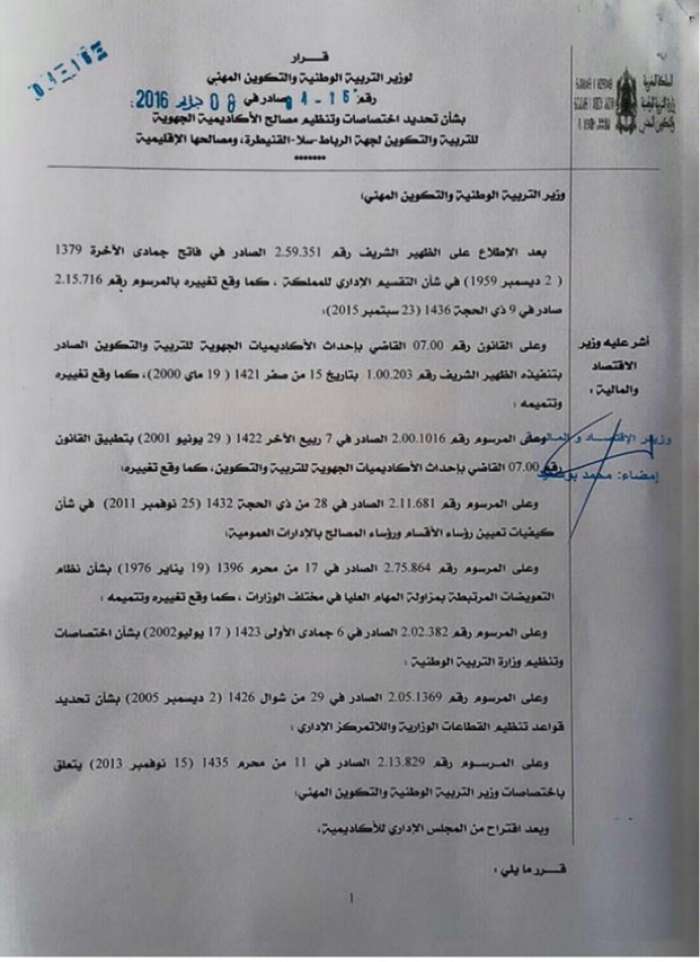 قـــرار
لوزير التربية الوطنية والتكوين المهني
رقم 04-16 صادر في 08 2016
بشأن تحديد اختصاصات وتنظيم مصالح الأكاديمية الجهوية
للتربية والتكوين لجهة الرباط-سلا-القنيطرة، ومصالحها الإقليمية
*******
المملكة المغربية
وزارة التربية الوطنية
والتكوين المهني
وزير التربية الوطنية والتكوين المهني؛
بعد الإطلاع على الظهير الشريف رقم 2.59.351 الصادر في فاتح جمادى الآخرة 1379
( 2 ديسمبر 1959) في شأن التقسيم الإداري للمملكة ، كما وقع تغييره بالمرسوم رقم 2.15.716
صادر في 9 ذي الحجة 1436 (23 سبتمبر 2015)؛
وعلى القانون رقم 07.00 القاضي بإحداث الأكاديميات الجهوية للتربية والتكوين الصادر
بتنفيذه الظهير الشريف رقم 1.00.203 بتاريخ 15 من صفر 1421 ( 19 ماي 2000)، كما وقع تغييره
وتتميمه ؛
وعلى المرسوم رقم 2.00.1016 الصادر في 7 ربيع الآخر 1422 ( 29 يونيو 2001) بتطبيق القانون
رقم 07.00 القاضي بإحداث الأكاديميات الجهوية للتربية والتكوين، كما وقع تغييره؛
وعلى المرسوم رقم 2.11.681 الصادر في 28 من ذي الحجة 1432 (25 نوفمبر 2011) في شأن
كيفيات تعيين رؤساء الأقسام ورؤساء المصالح بالإدارات العمومية؛
وعلى المرسوم رقم 2.75.864 الصادر في 17 من محرم 1396 (19 يناير 1976) بشأن نظام
التعويضات المرتبطة بمزاولة المهام العليا في مختلف الوزارات ، كما وقع تغييره وتتميمه ؛
وعلى المرسوم رقم 2.02.382 الصادر في 6 جمادى الأولى 1423 ( 17 يوليو2002) بشأن اختصاصات
وتنظيم وزارة التربية الوطنية ؛
وعلى المرسوم رقم 2.05.1369 الصادر في 29 من شوال 1426 (2 ديسمبر 2005) بشأن تحديد
قواعد تنظيم القطاعات الوزارية واللاتمركز الإداري ؛
وعلى المرسوم رقم 2.13.829 الصادر في 11 من محرم 1435 (15 نوفمبر 2013) يتعلق
باختصاصات وزير التربية الوطنية والتكوين المهني؛
وبعد اقتراح من المجلس الإداري للأكاديمية،
قــرر ما يلي :
أشر عليه وزير
الاقتصاد
والمالية :
وزير الاقتصاد و المالية
إمضاء: محمد بوسعيد
1